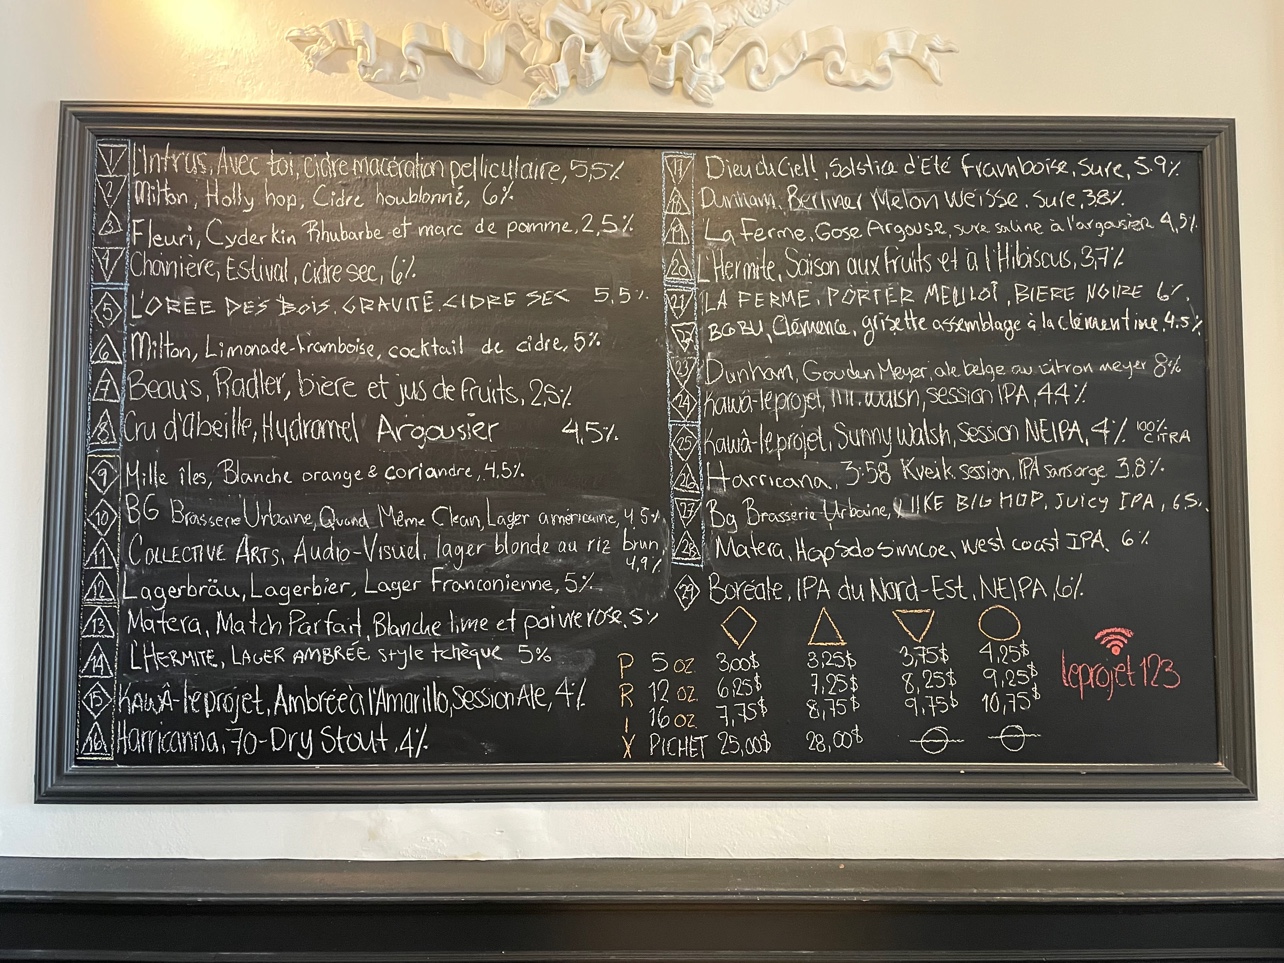 1 L'Intrus, Avec toi, cidre macération pelliculaire, 5,5%
2 Milton, Holly hop, Cidre houblonné, 6%
3 Fleuri, Cyderkin Rhubarbe et marc de pomme, 2,5%
4 Chainière, Estival, cidre sec, 6%
5 L'ORÉE DES BOIS, GRAVITÉ, CIDRE SEC 5,5%
6 Milton, Limonade-framboise, cocktail de cidre, 5%
7 Beau's, Radler, bière et jus de fruits, 2,5%
8 Cru d'abeille, Hydromel Argousier 4,5%
9 Mille îles, Blanche orange & coriandre, 4.5%
10 BG Brasserie Urbaine, Quand Même Clean, Lager américaine, 4,5%
11 COLLECTIVE ARTS, Audio-Visuel, lager blonde au riz brun, 4,9%
12 Lagerbräu, Lagerbier, Lager Franconienne, 5%
13 Matera, Match Parfait, Blanche lime et poivre rose, 5%
14 L'HERMITE, LAGER AMBRÉE style tchèque 5%
15 Kawâ-leprojet, Ambrée à l'Amarillo, Session Ale, 4%
16 Harricanna, 70-Dry Stout, 4%
17 Dieu du Ciel!, Solstice d'Été framboise, Sure, 5.9%
18 Dunham, Berliner Melon Weisse, Sure, 3.8%
19 La Ferme, Gose Argouse, sure saline à l'argousier 4,5%
20 L'Hermite, Saison aux fruits et à l'Hibiscus, 3,7%
21 LA FERME, PORTER MEULOÏ, BIERE NOIRE 6%
BGBU, Clémence, grisette assemblage à la clémentine, 4.5%
23 Dunham, Gouden Meyer, ale belge au citron meyer 8%
24 Kawâ-leprojet, M. walsh, session IPA, 4.4%
25 Kawâ-leprojet, Sunny Walsh, Session NEIPA, 4% 100% CITRA
26 Harricana, 3:58 Kveik, session, IPA sans orge 3,8%
27 Bg Brasserie Urbaine, LIKE BIG HOP, JUICY IPA, 6,5%
28 Matera, Hopsdosimcoe, west coast IPA, 6%
29 Boréale, IPA du Nord-Est, NEIPA, 6%
P 5 oz 3,00$ 3,25$ 3,75$ 4,25$
R 12 oz 6,25$ 7,25$ 8,25$ 9,25$
I 16 oz 7,75$ 8,75$ 9,75$ 10,75$
X PICHET 25,00$ 28,00$
leprojet123